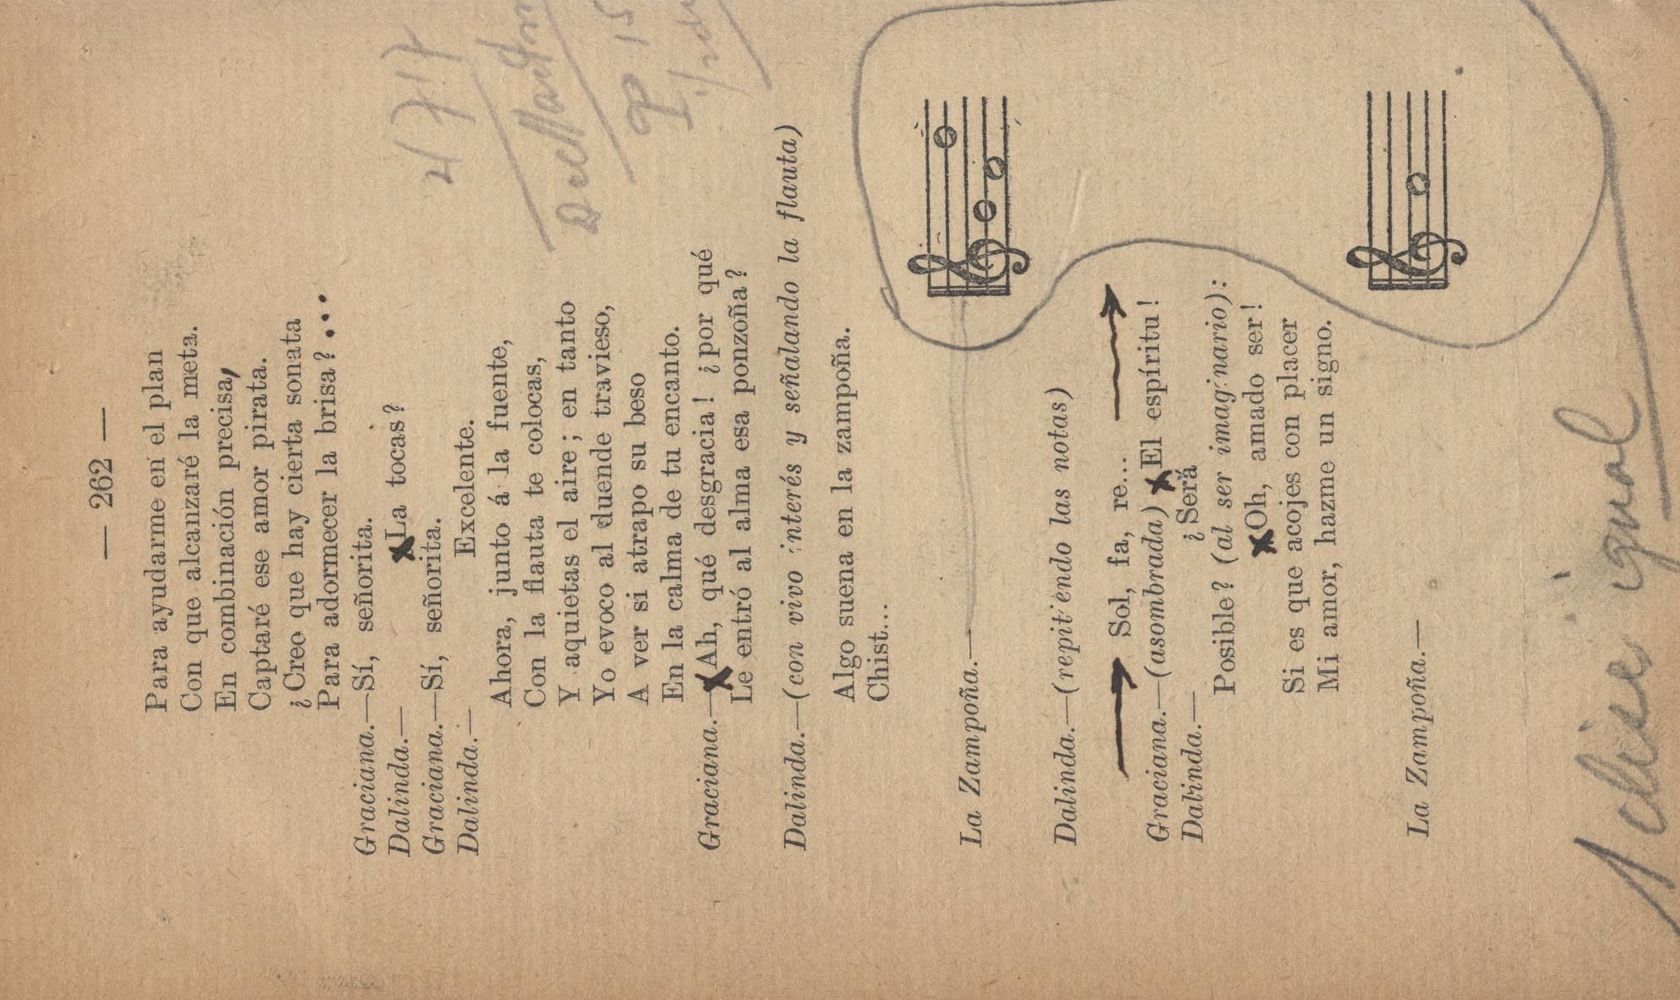 — 262 —
Para ayudarme en el plan
Con que alcanzaré la meta.
En combinación precisa,
Captaré ese amor pirata.
¿Creo que hay cierta sonata
Para adormecer la brisa?...
Graciana.—Sí, señorita.
Dalinda.— La tocas?
Graciana.—Sí, señorita.
Dalinda.— Excelente.
Ahora, junto á la fuente,
Con la flauta te colocas,
Y aquietas el aire; en tanto
Yo evoco al duende travieso,
A ver si atrapo su beso
En la calma de tu encanto.
Graciana.—Ah, qué desgracia! ¿por qué
Le entró al alma esa ponzoña?
Dalinda.—(con vivo interés y señalando la flauta)
Algo suena en la zampoña.
Chist...
La Zampoña.—
Dalinda.—(repitiendo las notas)
Sol, fa, re...
Graciana.—(asombrada) El espíritu!
Dalinda.— ¿Será
Posible? (al ser imaginario):
Oh, amado ser!
Si es que acojes con placer
Mi amor, hazme un signo.
La Zampoña.—
1 clisé igual